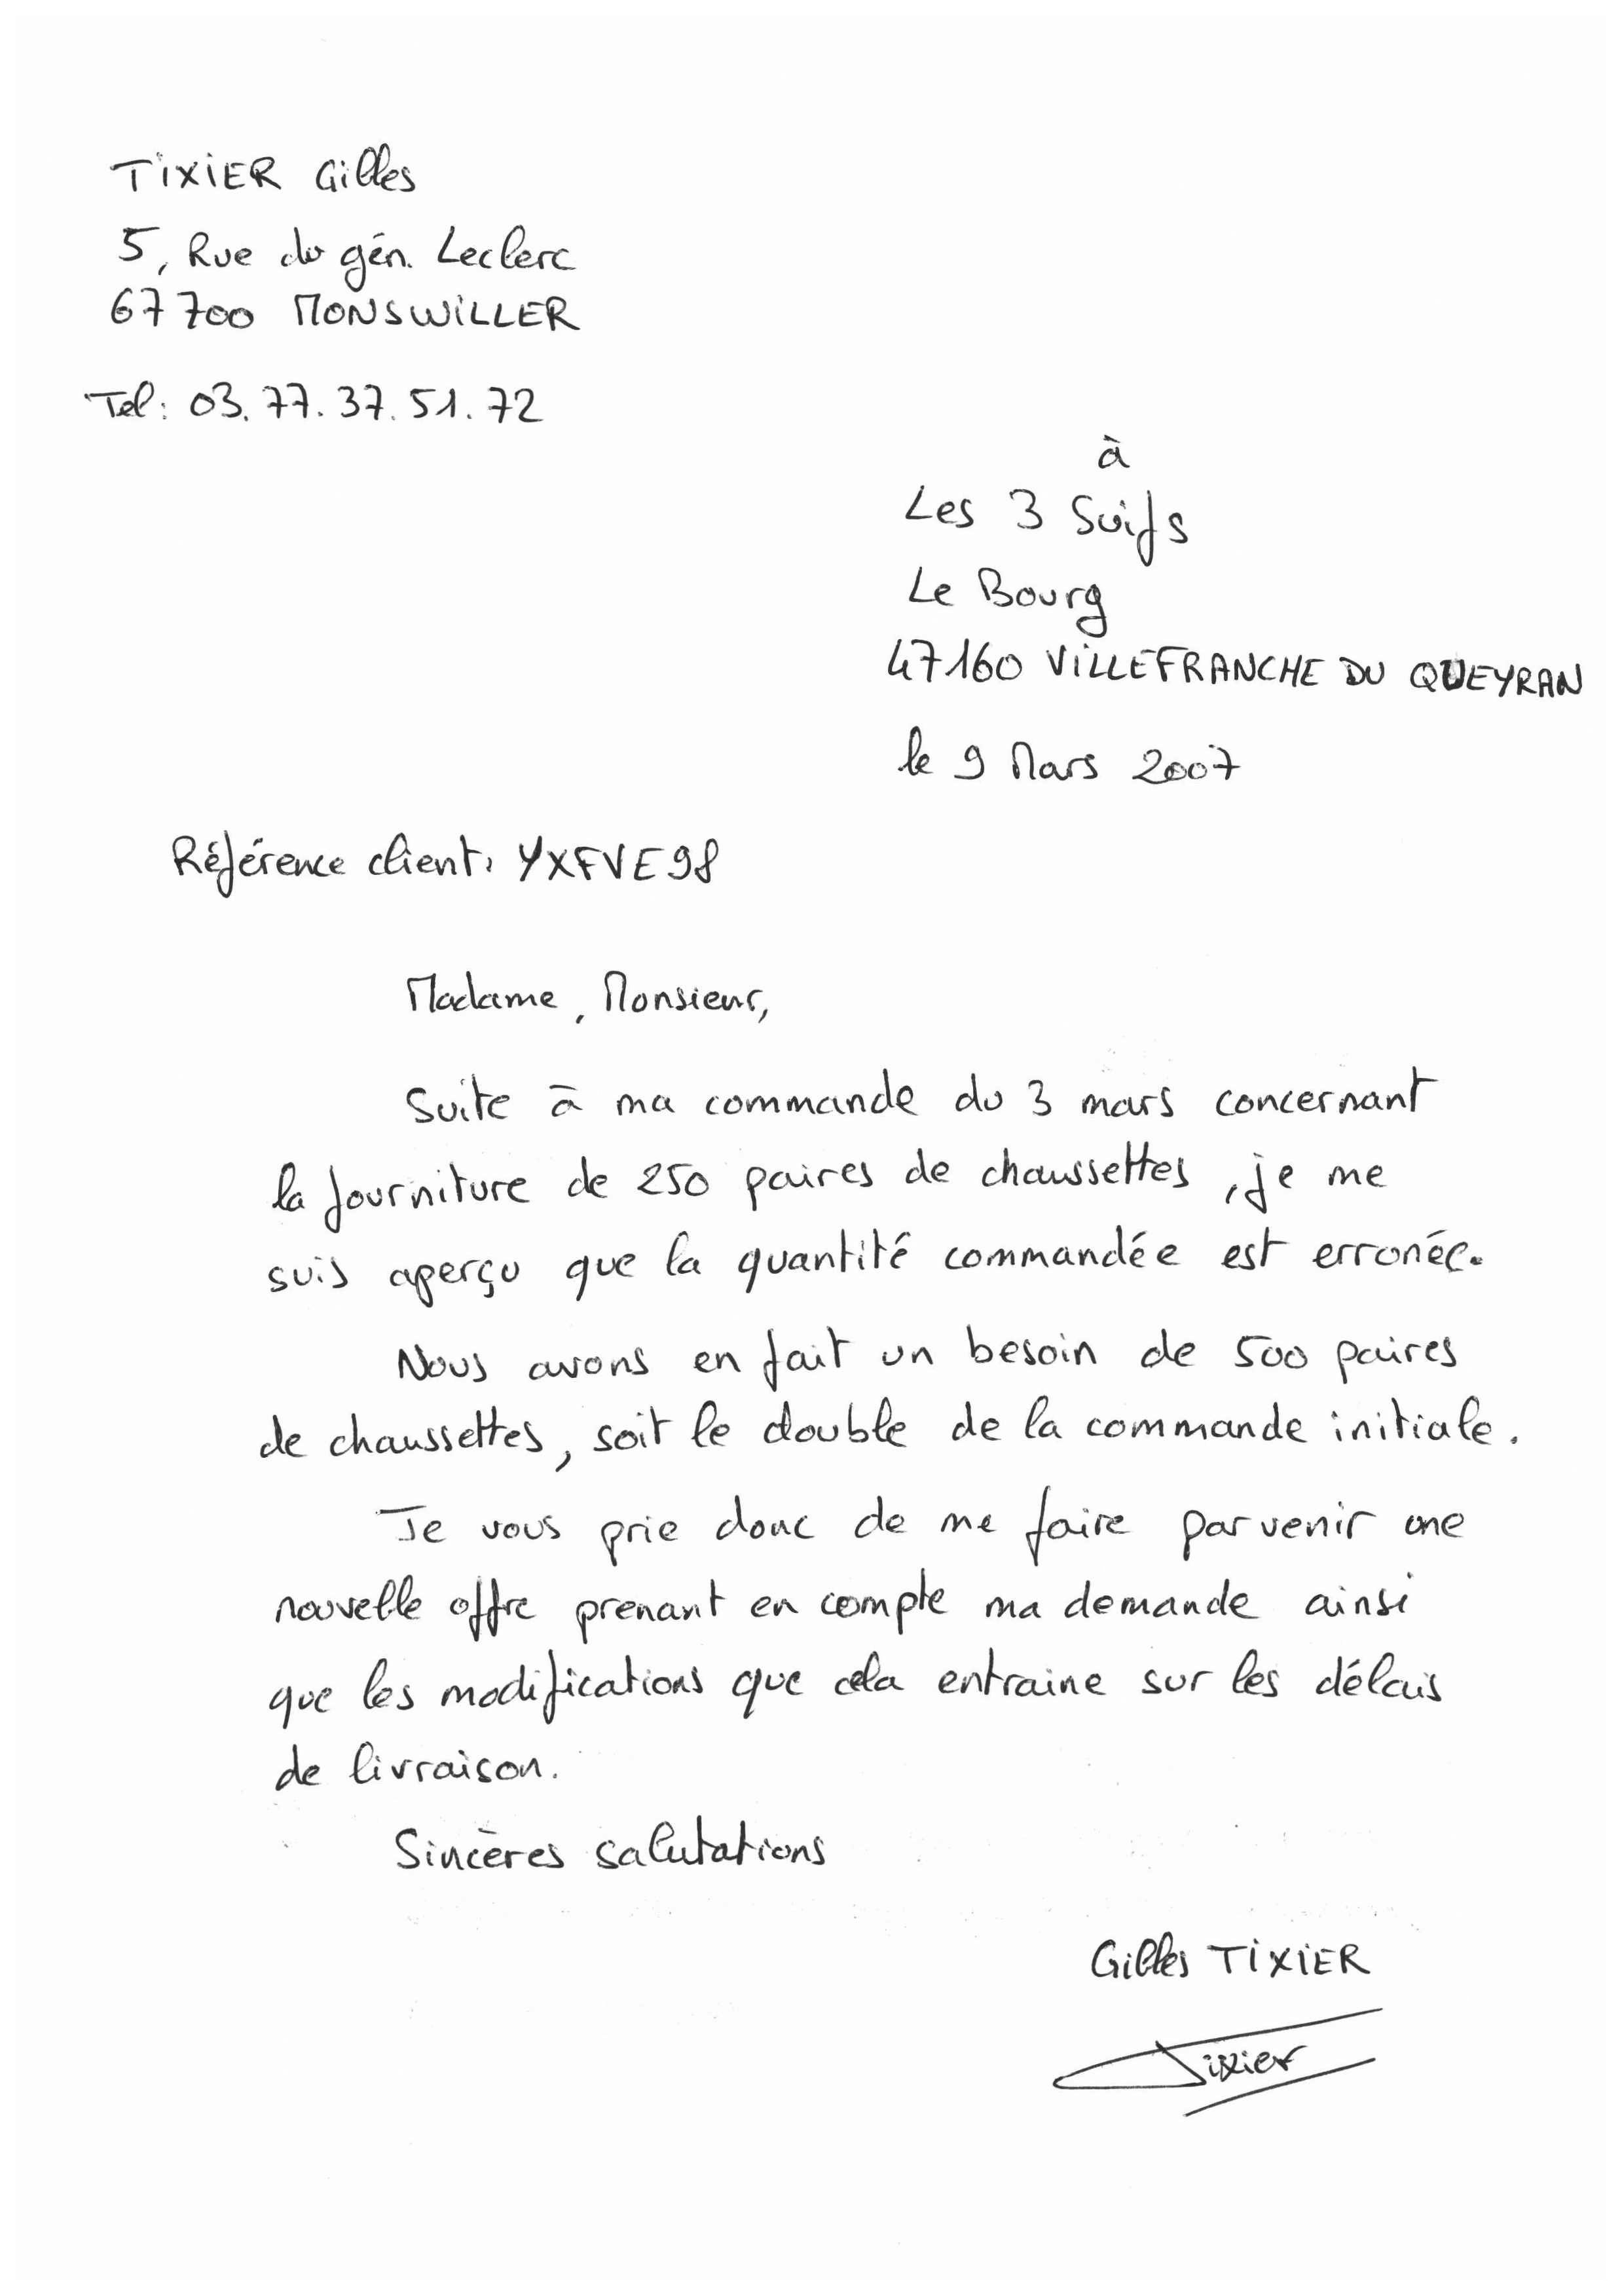 TIXIER Gilles
5, Rue du gén. Leclerc
67700 MONSWILLER
Tel: 03.77.37.51.72
à
Les 3 Suifs
Le Bourg
47160 VILLEFRANCHE DU QUEYRAN
le 9 Mars 2007
Référence client: YXFVE98
Madame, Monsieur,
Suite à ma commande du 3 mars concernant
la fourniture de 250 paires de chaussettes, je me
suis aperçu que la quantité commandée est erronée.
Nous avons en fait un besoin de 500 paires
de chaussettes, soit le double de la commande initiale.
Je vous prie donc de me faire parvenir une
nouvelle offre prenant en compte ma demande ainsi
que les modifications que cela entraine sur les délais
de livraison.
Sincères salutations
Gilles TIXIER
Tixier